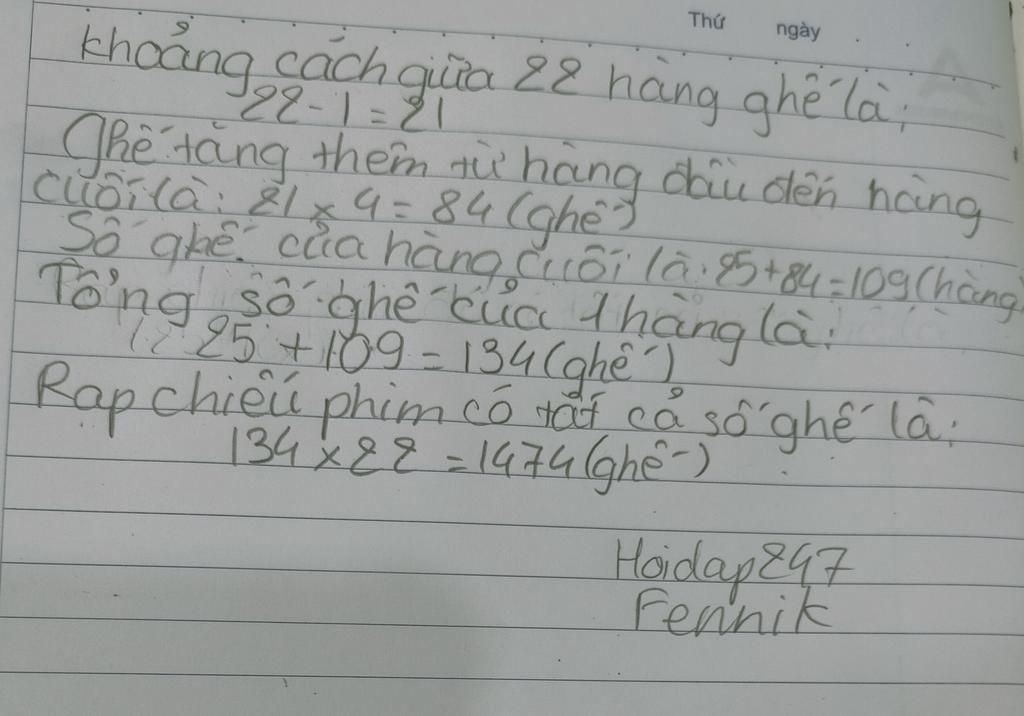 Thứ ngày
khoảng cách giữa 22 hàng ghế là;
22-1=21
Ghế tăng thêm từ hàng đầu đến hàng
cuối là: 21 x 4 = 84 (ghế)
Số ghế của hàng cuối là: 25+84=109 (hàng)
Tổng số ghế của 1 hàng là:
25 + 109 = 134 (ghế)
Rạp chiếu phim có tất cả số ghế là:
134 x 22 = 1474 (ghế)
Hoidap247
Fennik